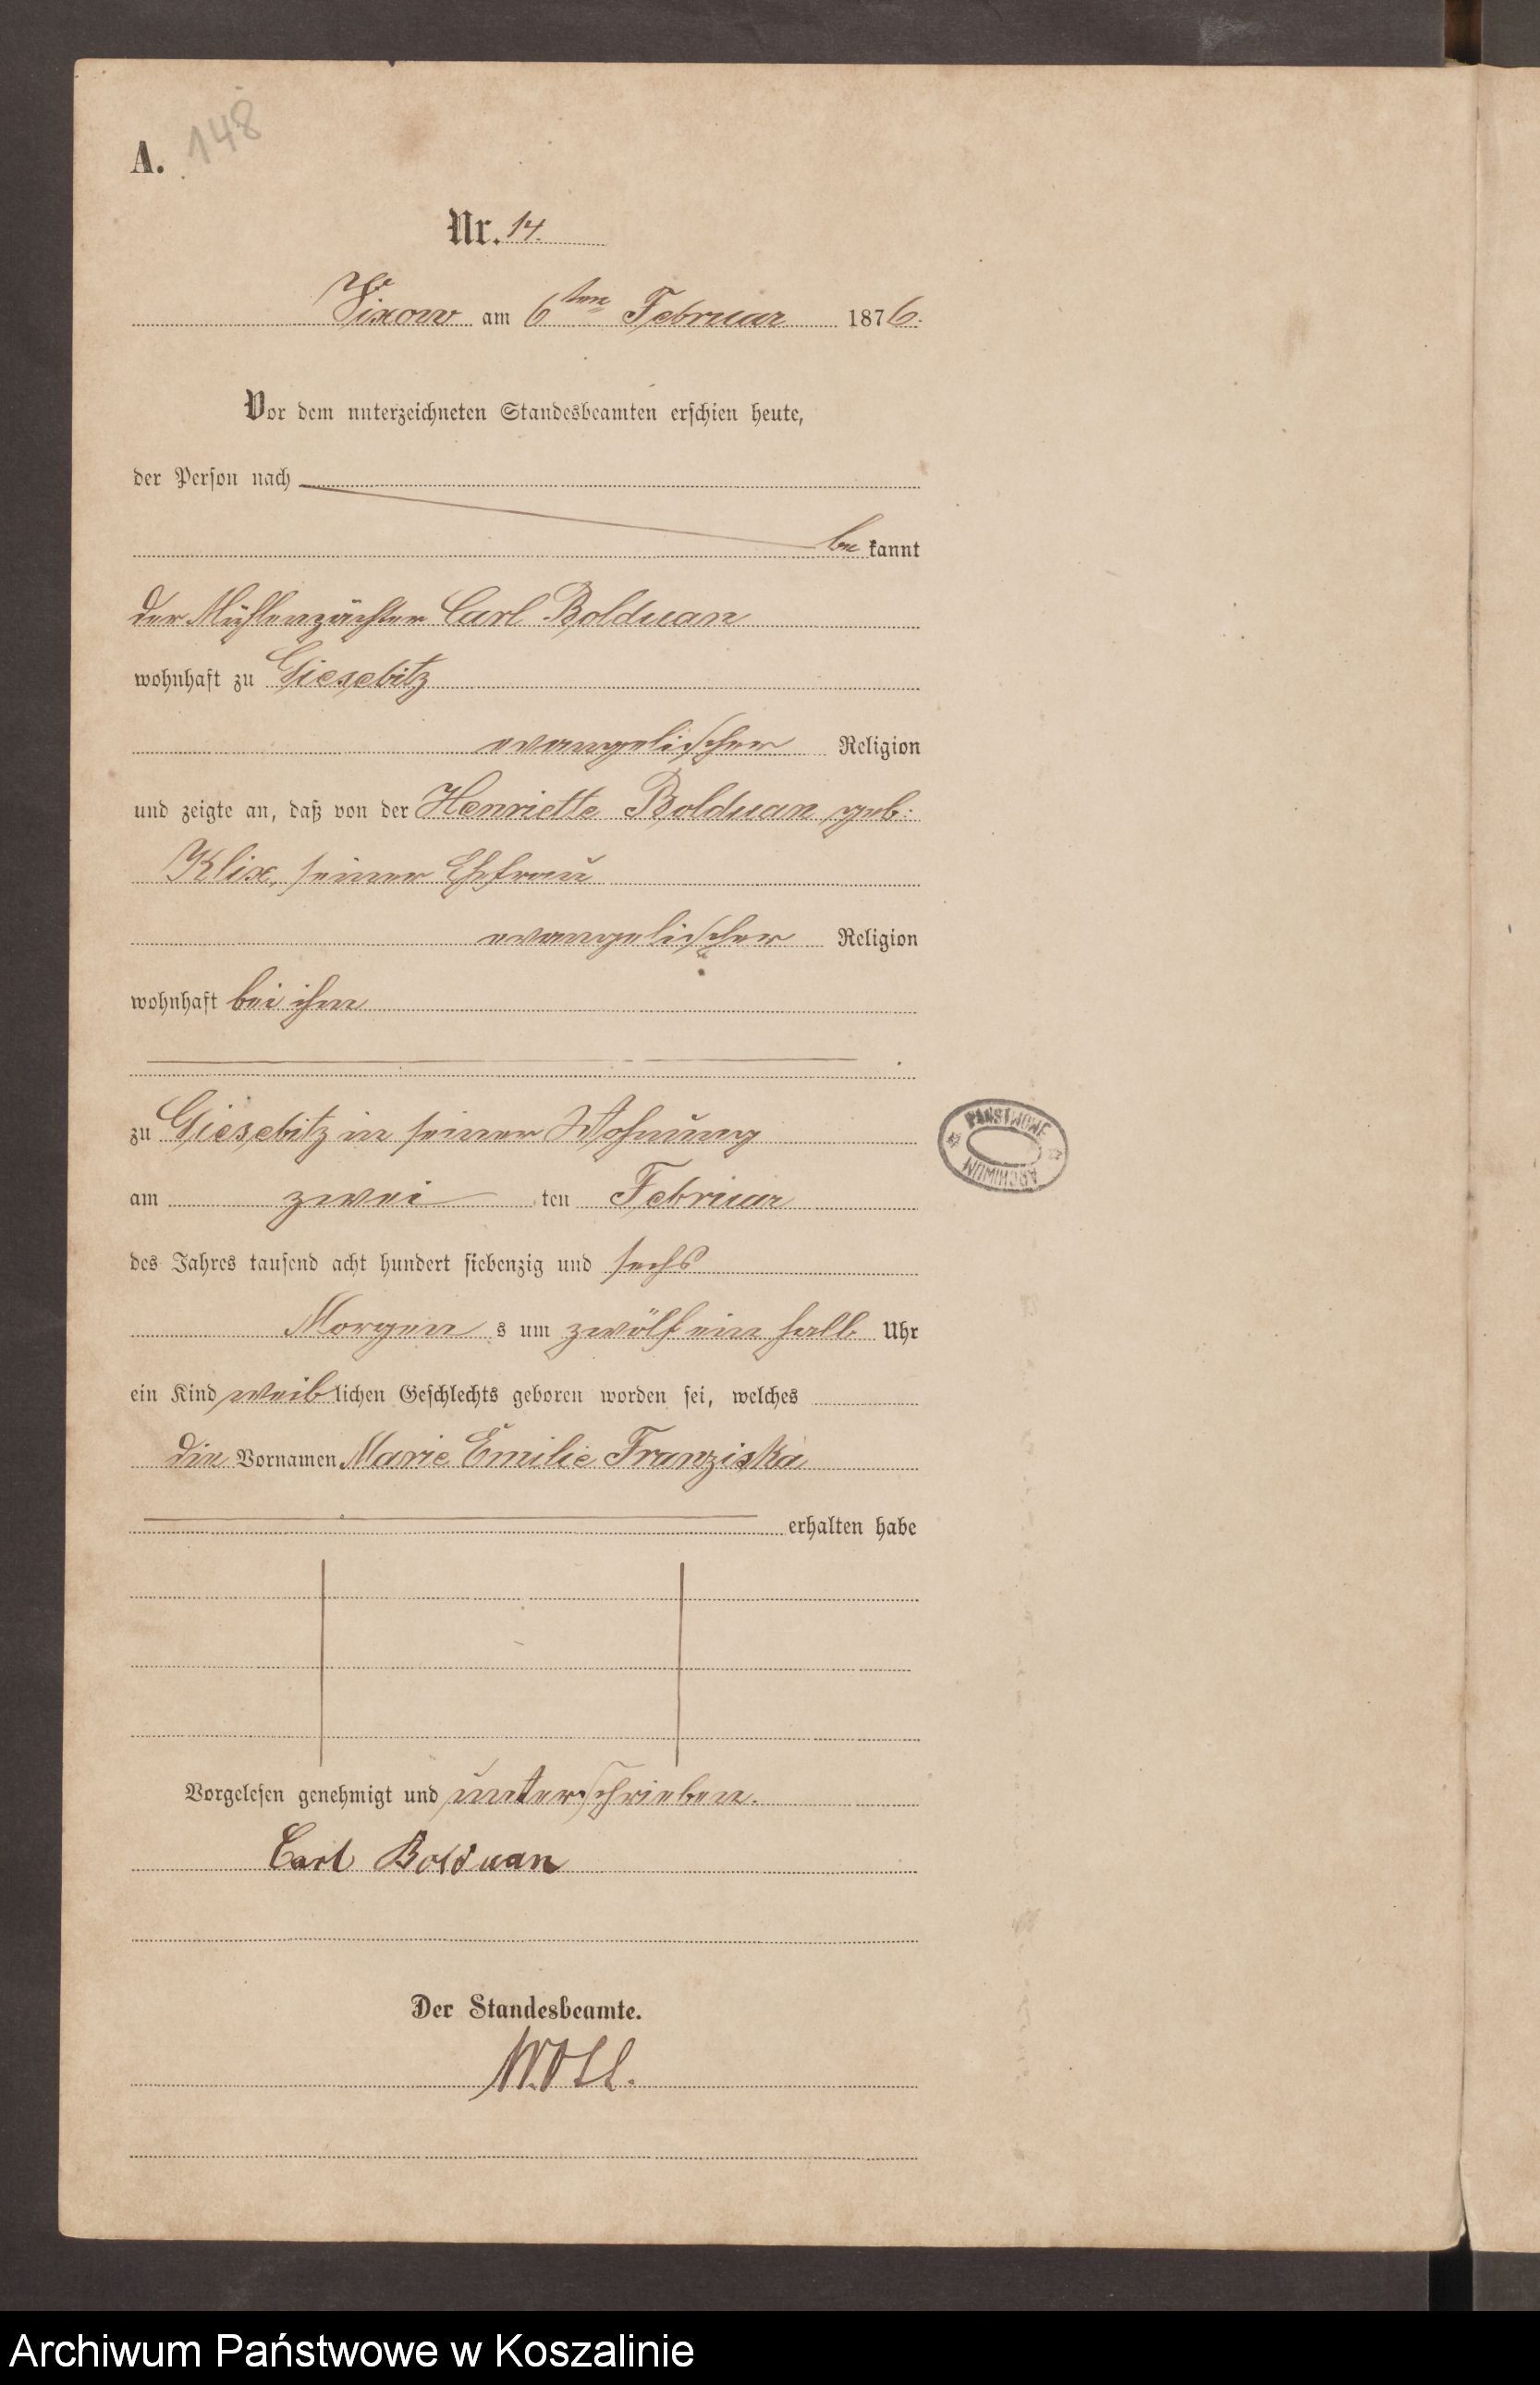 A. 148
Nr. 14.
Vixow am 6ten Februar 1876.
Vor dem nnterzeichneten Standesbeamten erschien heute,
der Person nach
be kannt
der Mühlenpächter Carl Bolduan
wohnhaft zu Giesebitz
evangelischer Religion
und zeigte an, daß von der Henriette Bolduan geb:
Klix, seiner Ehefrau
evangelischer Religion
wohnhaft bei ihm
zu Giesebitz in seiner Wohnung
PAŃSTWOWE ARCHIWUM
am zwei ten Februar
des Jahres tausend acht hundert siebenzig und sechs
Morgen s um zwölf ein halb Uhr
ein Kind weib lichen Geschlechts geboren worden sei, welches
die Vornamen Marie Emilie Franziska
erhalten habe
Vorgelesen genehmigt und unterschrieben.
Carl Bolduan
Der Standesbeamte.
Woll.
Archiwum Państwowe w Koszalinie